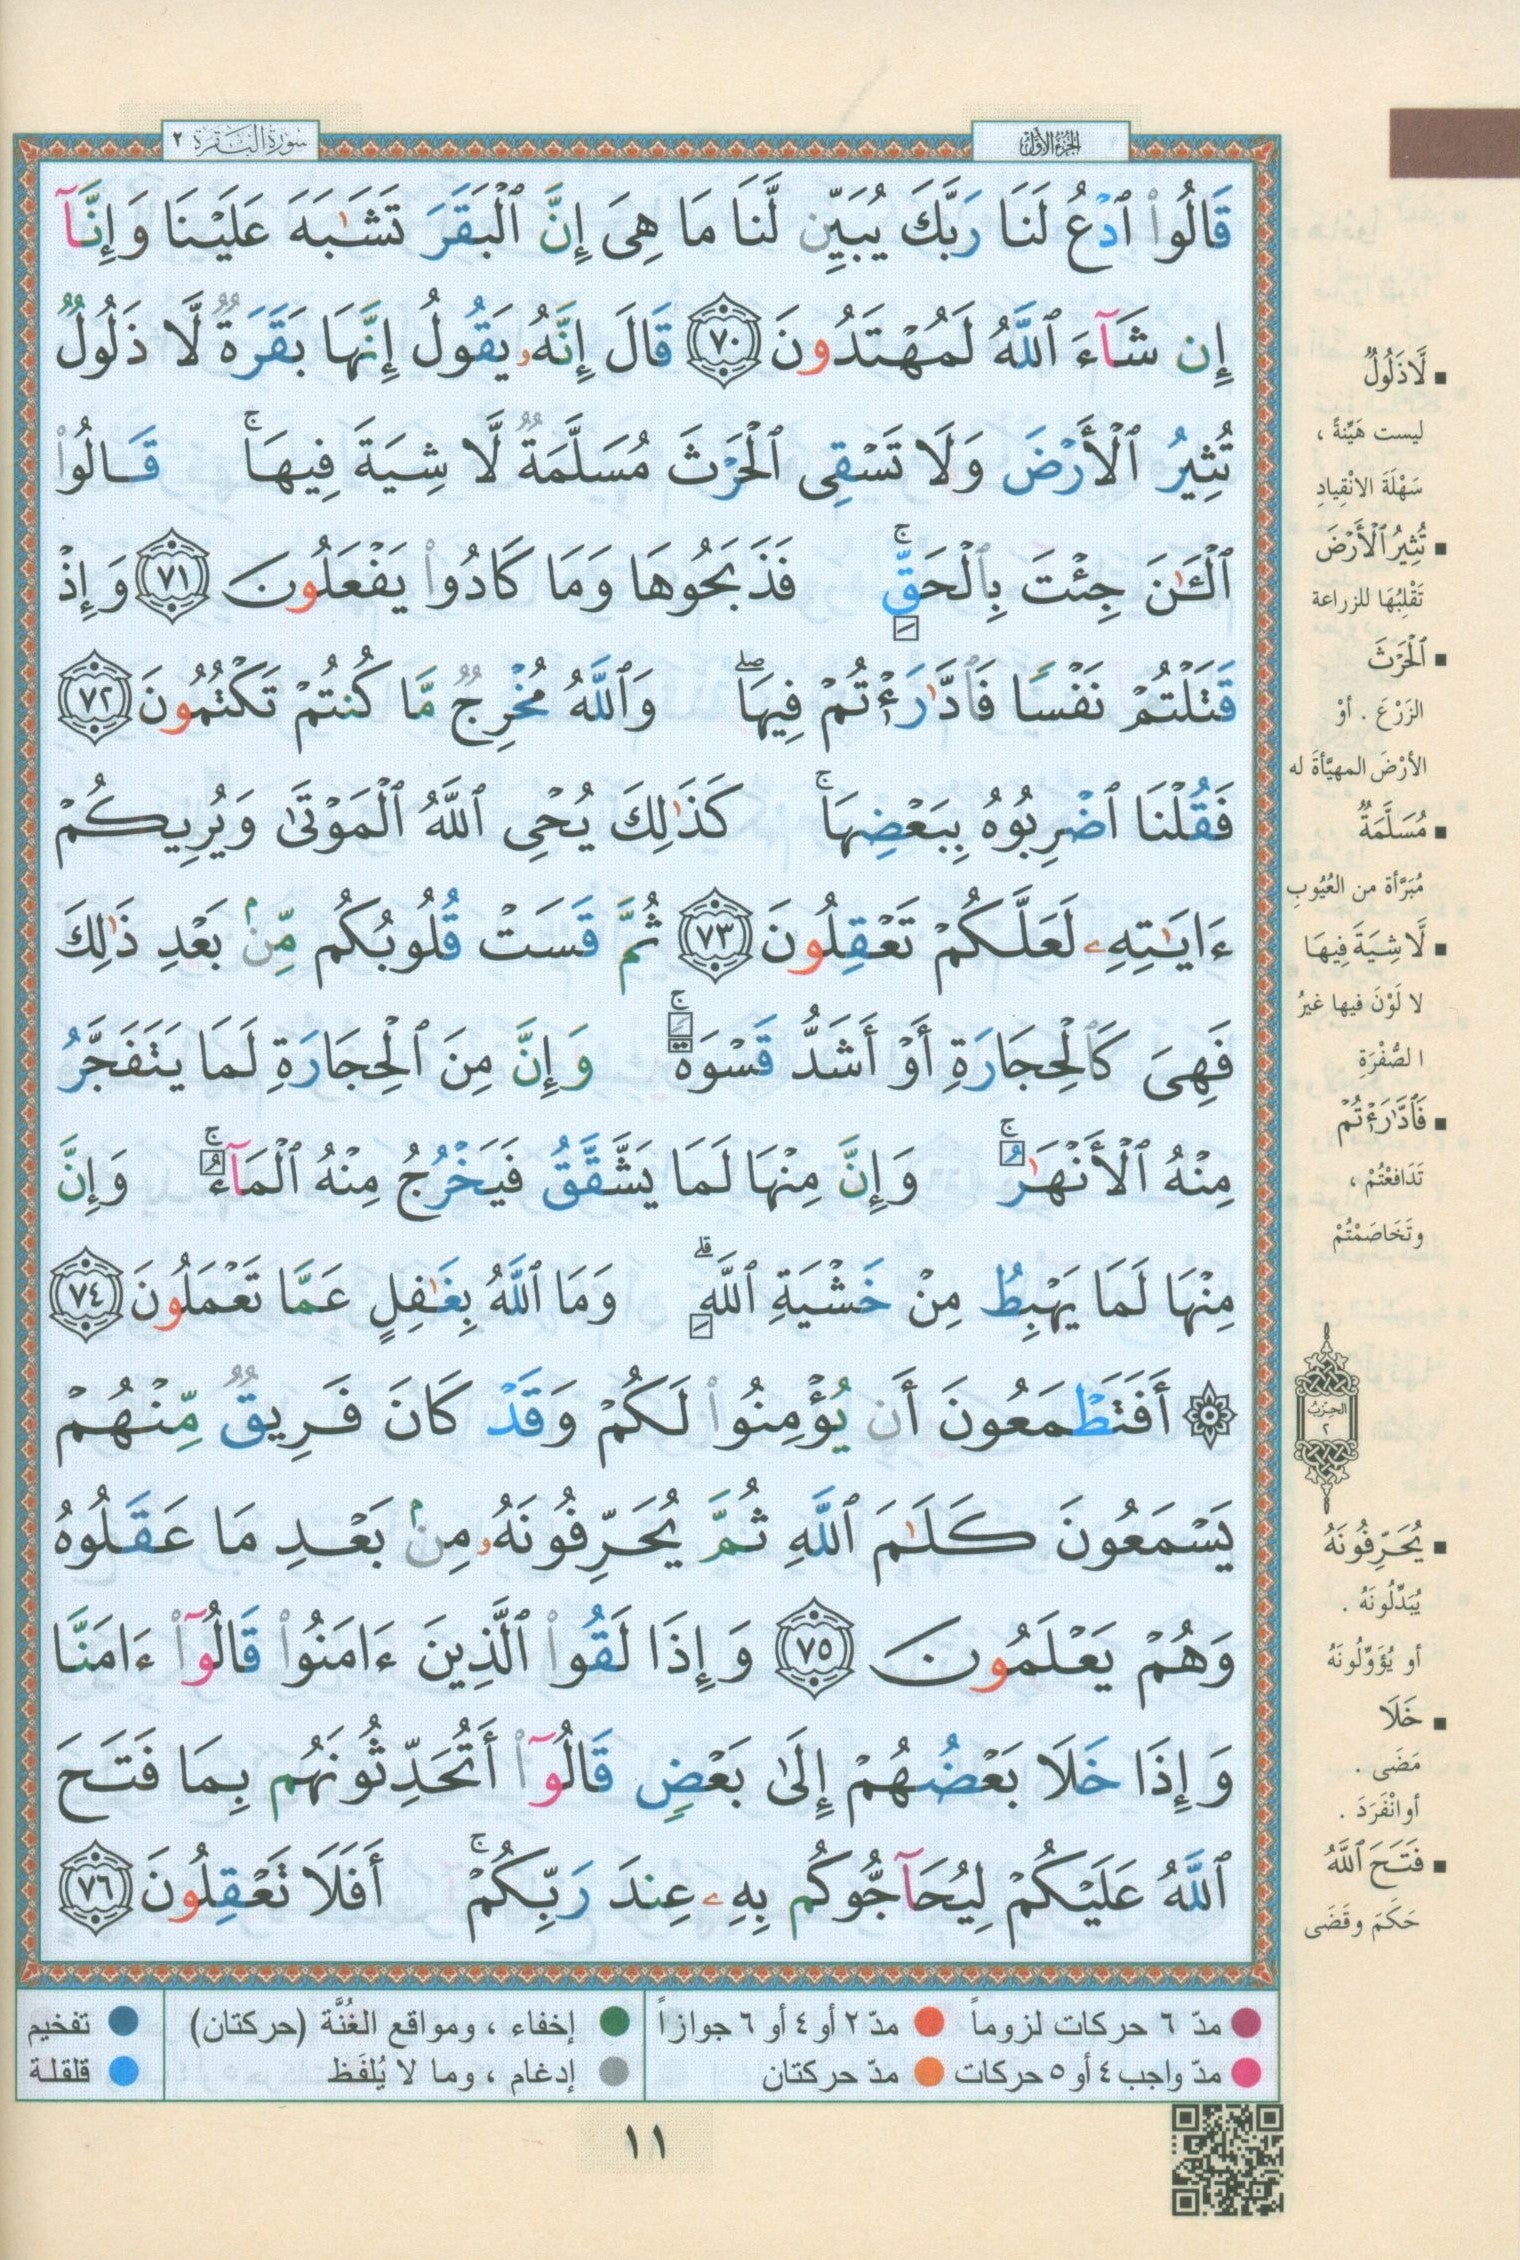 الجزء الأول
سورة البقرة ٢
قَالُوا۟ ٱدْعُ لَنَا رَبَّكَ يُبَيِّن لَّنَا مَا هِىَ إِنَّ ٱلْبَقَرَ تَشَٰبَهَ عَلَيْنَا وَإِنَّآ
إِن شَآءَ ٱللَّهُ لَمُهْتَدُونَ ٧٠ قَالَ إِنَّهُۥ يَقُولُ إِنَّهَا بَقَرَةٌ لَّا ذَلُولٌ
تُثِيرُ ٱلْأَرْضَ وَلَا تَسْقِى ٱلْحَرْثَ مُسَلَّمَةٌ لَّا شِيَةَ فِيهَا ۚ قَالُوا۟
ٱلْـَٰٔنَ جِئْتَ بِٱلْحَقِّ ۚ فَذَبَحُوهَا وَمَا كَادُوا۟ يَفْعَلُونَ ٧١ وَإِذْ
قَتَلْتُمْ نَفْسًا فَٱدَّٰرَْٰٔتُمْ فِيهَا ۖ وَٱللَّهُ مُخْرِجٌ مَّا كُنتُمْ تَكْتُمُونَ ٧٢
فَقُلْنَا ٱضْرِبُوهُ بِبَعْضِهَا ۚ كَذَٰلِكَ يُحْىِ ٱللَّهُ ٱلْمَوْتَىٰ وَيُرِيكُمْ
ءَايَٰتِهِۦ لَعَلَّكُمْ تَعْقِلُونَ ٧٣ ثُمَّ قَسَتْ قُلُوبُكُم مِّنۢ بَعْدِ ذَٰلِكَ
فَهِىَ كَٱلْحِجَارَةِ أَوْ أَشَدُّ قَسْوَةً ۚ وَإِنَّ مِنَ ٱلْحِجَارَةِ لَمَا يَتَفَجَّرُ
مِنْهُ ٱلْأَنْهَٰرُ ۚ وَإِنَّ مِنْهَا لَمَا يَشَّقَّقُ فَيَخْرُجُ مِنْهُ ٱلْمَآءُ ۚ وَإِنَّ
مِنْهَا لَمَا يَهْبِطُ مِنْ خَشْيَةِ ٱللَّهِ ۗ وَمَا ٱللَّهُ بِغَٰفِلٍ عَمَّا تَعْمَلُونَ ٧٤
۞ أَفَتَطْمَعُونَ أَن يُؤْمِنُوا۟ لَكُمْ وَقَدْ كَانَ فَرِيقٌ مِّنْهُمْ
يَسْمَعُونَ كَلَٰمَ ٱللَّهِ ثُمَّ يُحَرِّفُونَهُۥ مِنۢ بَعْدِ مَا عَقَلُوهُ
وَهُمْ يَعْلَمُونَ ٧٥ وَإِذَا لَقُوا۟ ٱلَّذِينَ ءَامَنُوا۟ قَالُوٓا۟ ءَامَنَّا
وَإِذَا خَلَا بَعْضُهُمْ إِلَىٰ بَعْضٍ قَالُوٓا۟ أَتُحَدِّثُونَهُم بِمَا فَتَحَ
ٱللَّهُ عَلَيْكُمْ لِيُحَآجُّوكُم بِهِۦ عِندَ رَبِّكُمْ ۚ أَفَلَا تَعْقِلُونَ ٧٦
لَّا ذَلُولٌ
ليست هَيِّنةً ،
سَهْلَةَ الانْقِيادِ
تُثِيرُ ٱلْأَرْضَ
تَقْلِبُهَا للزراعة
ٱلْحَرْثَ
الزَرْعَ . أوْ
الأرْضَ المهيَّأةَ له
مُسَلَّمَةٌ
مُبَرَّأة من العُيُوبِ
لَّا شِيَةَ فِيهَا
لا لَوْنَ فيها غيرُ
الصُّفْرَةِ
فَٱدَّٰرَْٰٔتُمْ
تَدَافعْتُمْ ،
وتَخَاصَمْتُمْ
الحزب
٢
يُحَرِّفُونَهُ
يُبَدِّلُونَهُ .
أو يُؤَوِّلُونَهُ
خَلَا
مَضَى .
أو انْفَرَدَ .
فَتَحَ ٱللَّهُ
حَكَمَ وقَضَى
مدّ ٦ حركات لزوماً مدّ ٢ أو ٤ أو ٦ جوازاً إخفاء ، ومواقع الغُنَّة (حركتان) تفخيم
مدّ واجب ٤ أو ٥ حركات مدّ حركتان إدغام ، وما لا يُلفَظ قلقلة
١١